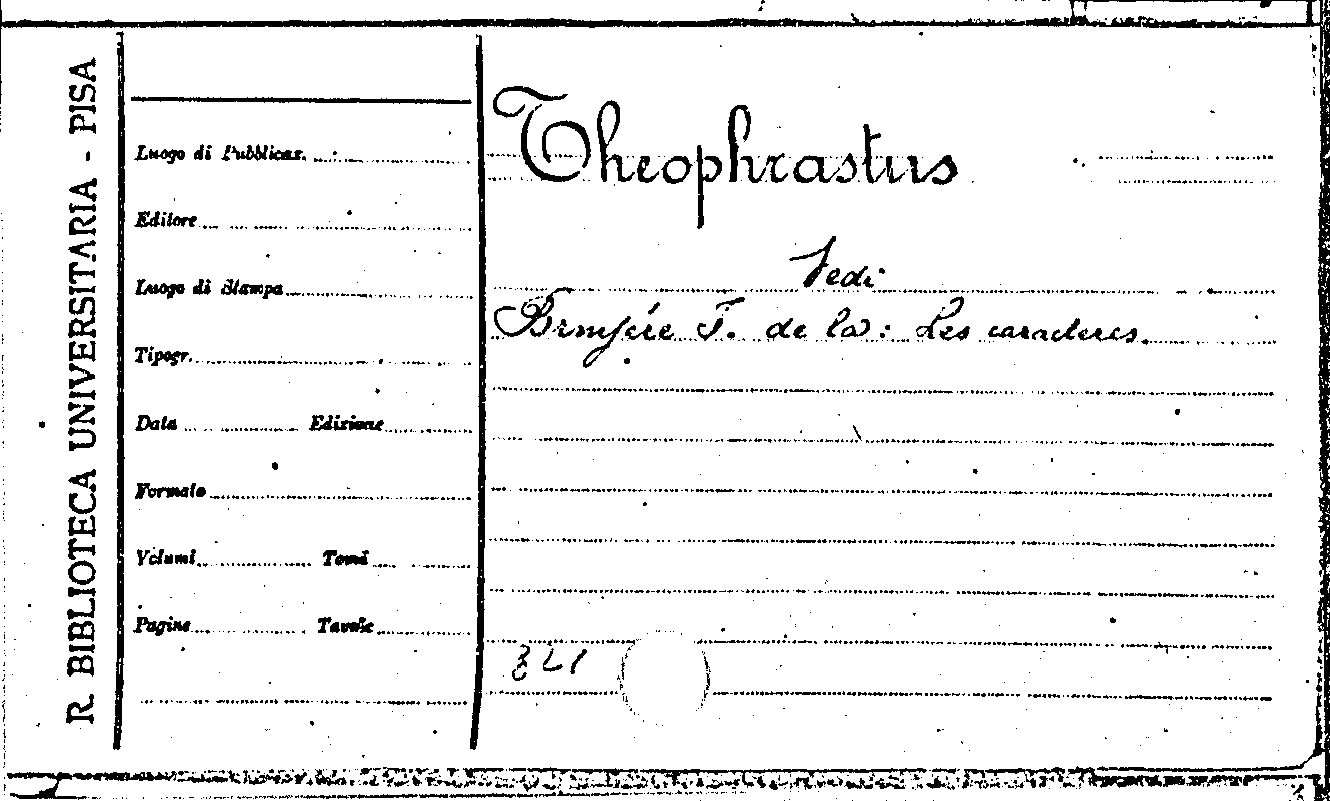 R. BIBLIOTECA UNIVERSITARIA - PISA
Luogo di Pubblicaz.
Editore
Luogo di Stampa
Tipogr.
Data Edizione
Formato
Volumi Tomi
Pagine Tavole
Theophrastus
Vedi
Bruyére F. de la: Les caracteres.
321